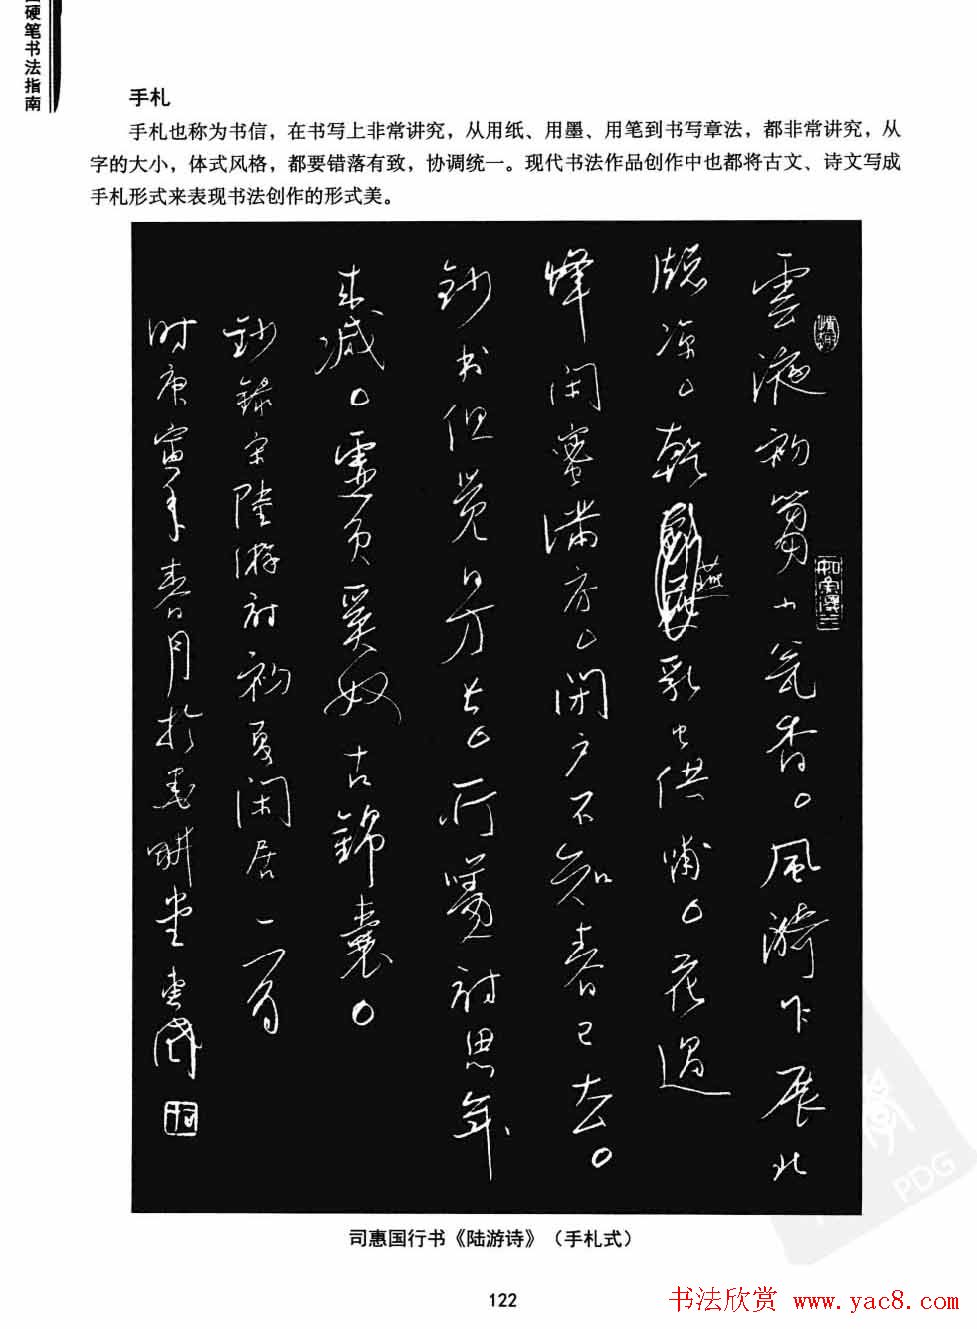 硬笔书法指南
手札
手札也称为书信，在书写上非常讲究，从用纸、用墨、用笔到书写章法，都非常讲究，从
字的大小，体式风格，都要错落有致，协调统一。现代书法作品创作中也都将古文、诗文写成
手札形式来表现书法创作的形式美。
雲液初篘小瓮香。風漪乍展北
牕凉。乾燕乳虫供哺。花過
蜂闲蜜满房。閉户不知春已去。
鈔书但觉日方长。所詩思年
来减。虚負奚奴古錦囊。
鈔録宋陸游詩初夏闲居一首
时庚寅年春月於墨耕堂惠國
司惠国行书《陆游诗》（手札式）
122
书法欣赏 www.yac8.com
PDG